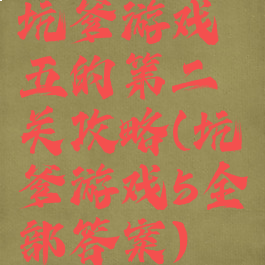 坑爹游戏
五的第二
关攻略(坑
爹游戏5全
部答案)